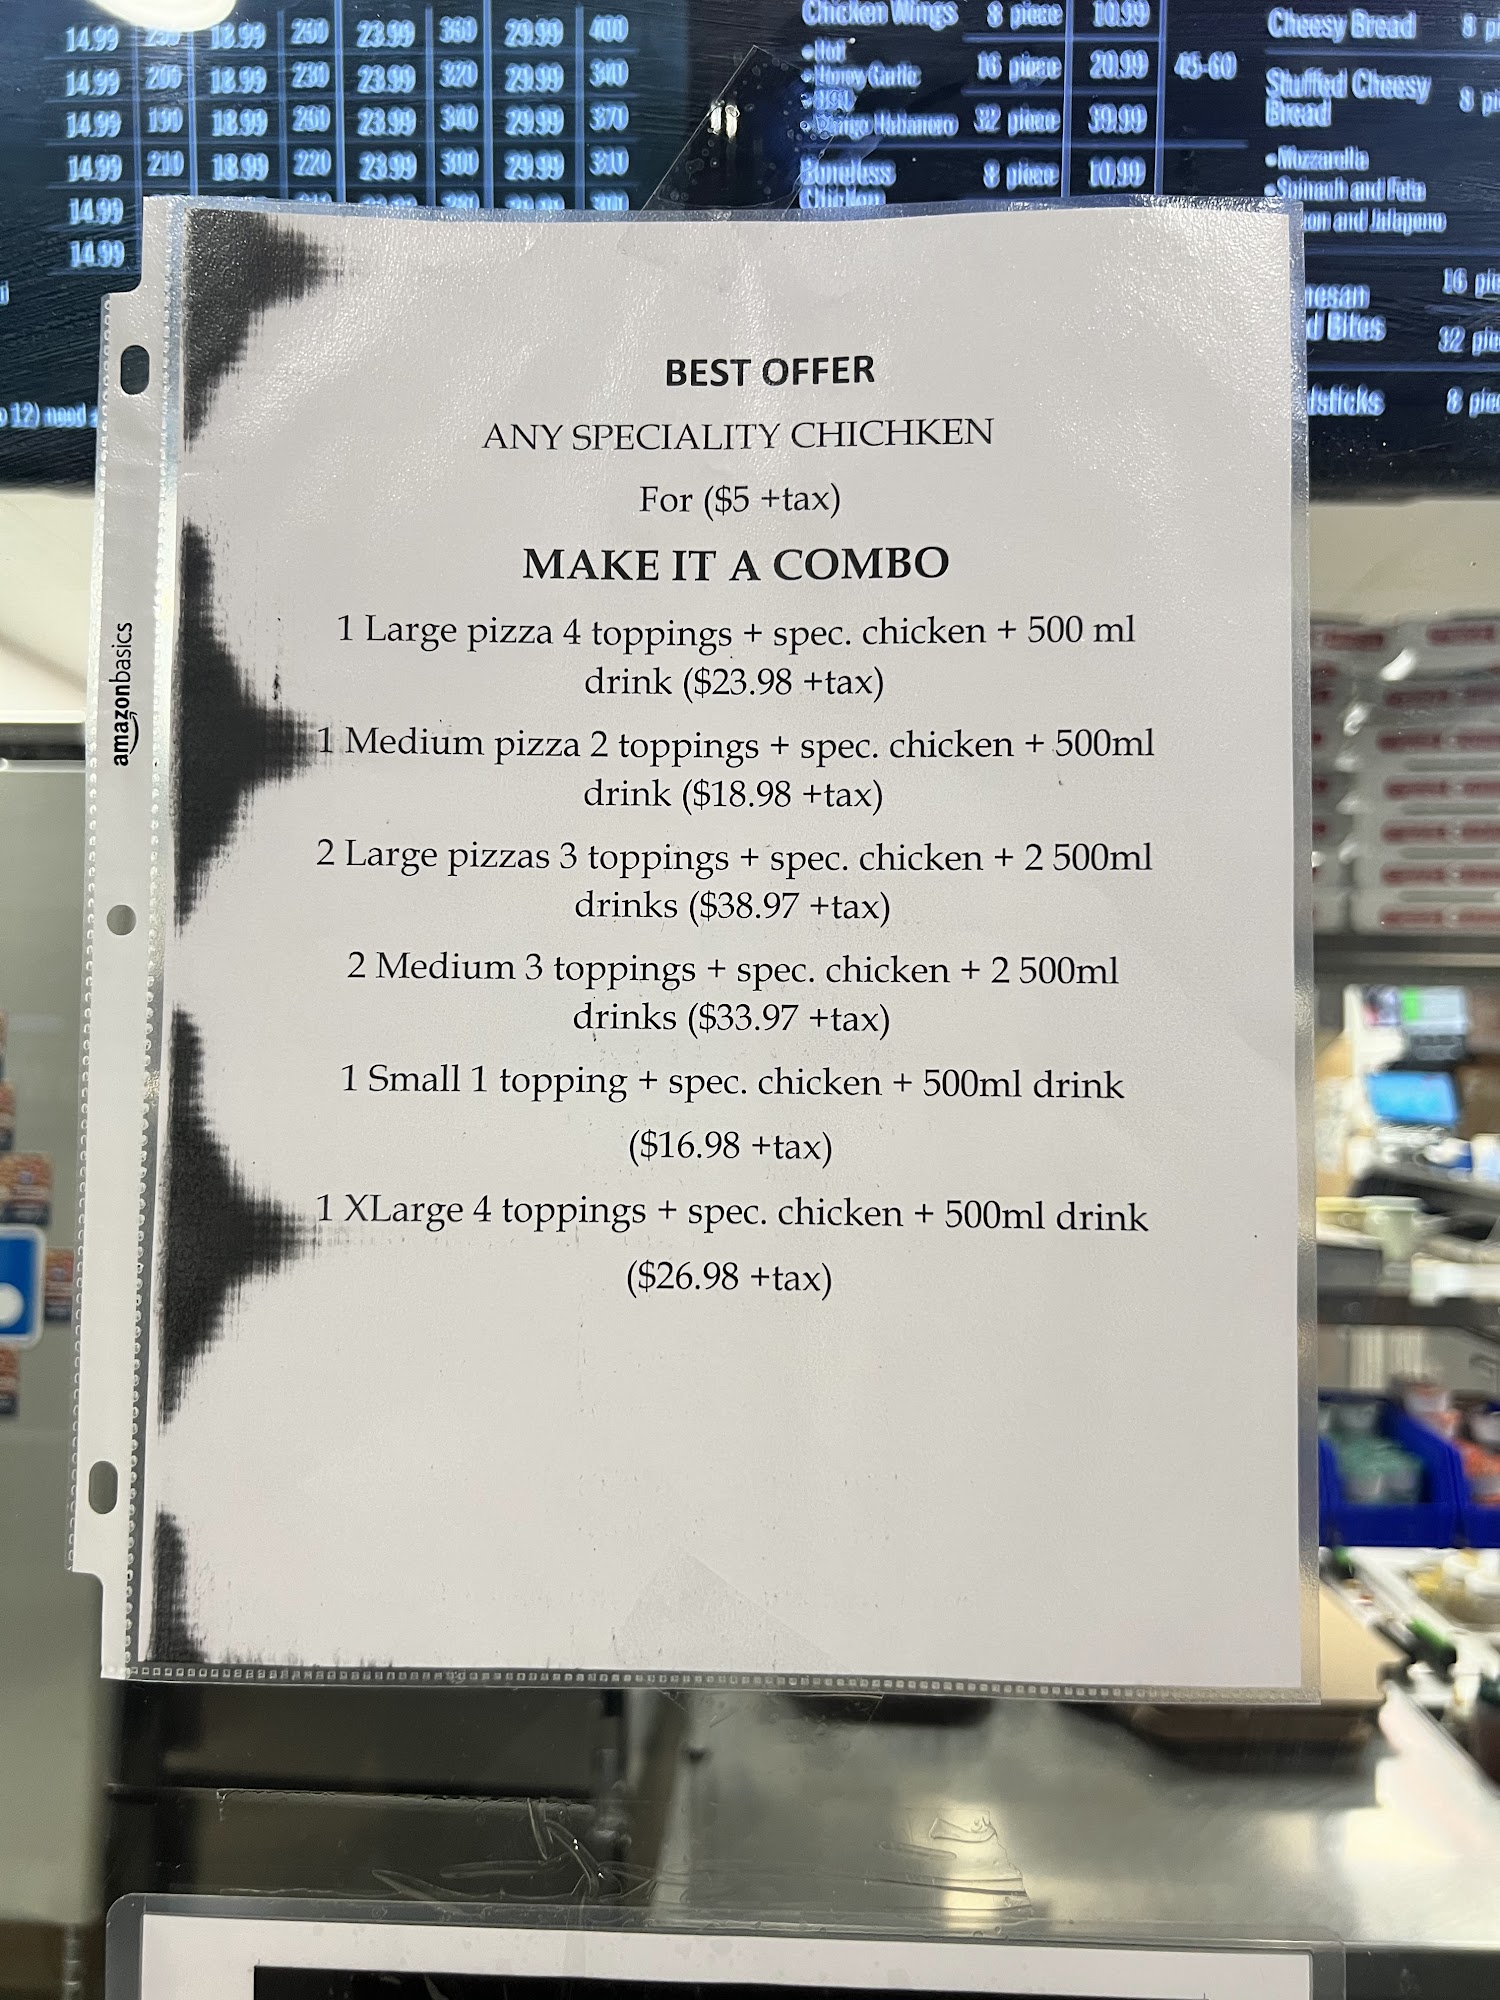 14.99 18.99 260 23.99 360 29.99 400
14.99 200 18.99 230 23.99 320 29.99 340
14.99 190 18.99 260 23.99 340 29.99 370
14.99 210 18.99 220 23.99 300 29.99 310
14.99
14.99
Chicken Wings 8 piece 10.99
•Hot
•Honey Garlic 16 piece 20.99 45-60
Habanero 32 piece 39.99
Boneless 8 piece 10.99
Chicken
Cheesy Bread
Stuffed Cheesy
Bread
•Mozzarella
•Spinach and Feta
and Jalapeno
16
d Bites 32
8
need
BEST OFFER
ANY SPECIALITY CHICHKEN
For ($5 +tax)
MAKE IT A COMBO
1 Large pizza 4 toppings + spec. chicken + 500 ml
drink ($23.98 +tax)
1 Medium pizza 2 toppings + spec. chicken + 500ml
drink ($18.98 +tax)
2 Large pizzas 3 toppings + spec. chicken + 2 500ml
drinks ($38.97 +tax)
2 Medium 3 toppings + spec. chicken + 2 500ml
drinks ($33.97 +tax)
1 Small 1 topping + spec. chicken + 500ml drink
($16.98 +tax)
1 XLarge 4 toppings + spec. chicken + 500ml drink
($26.98 +tax)
amazonbasics